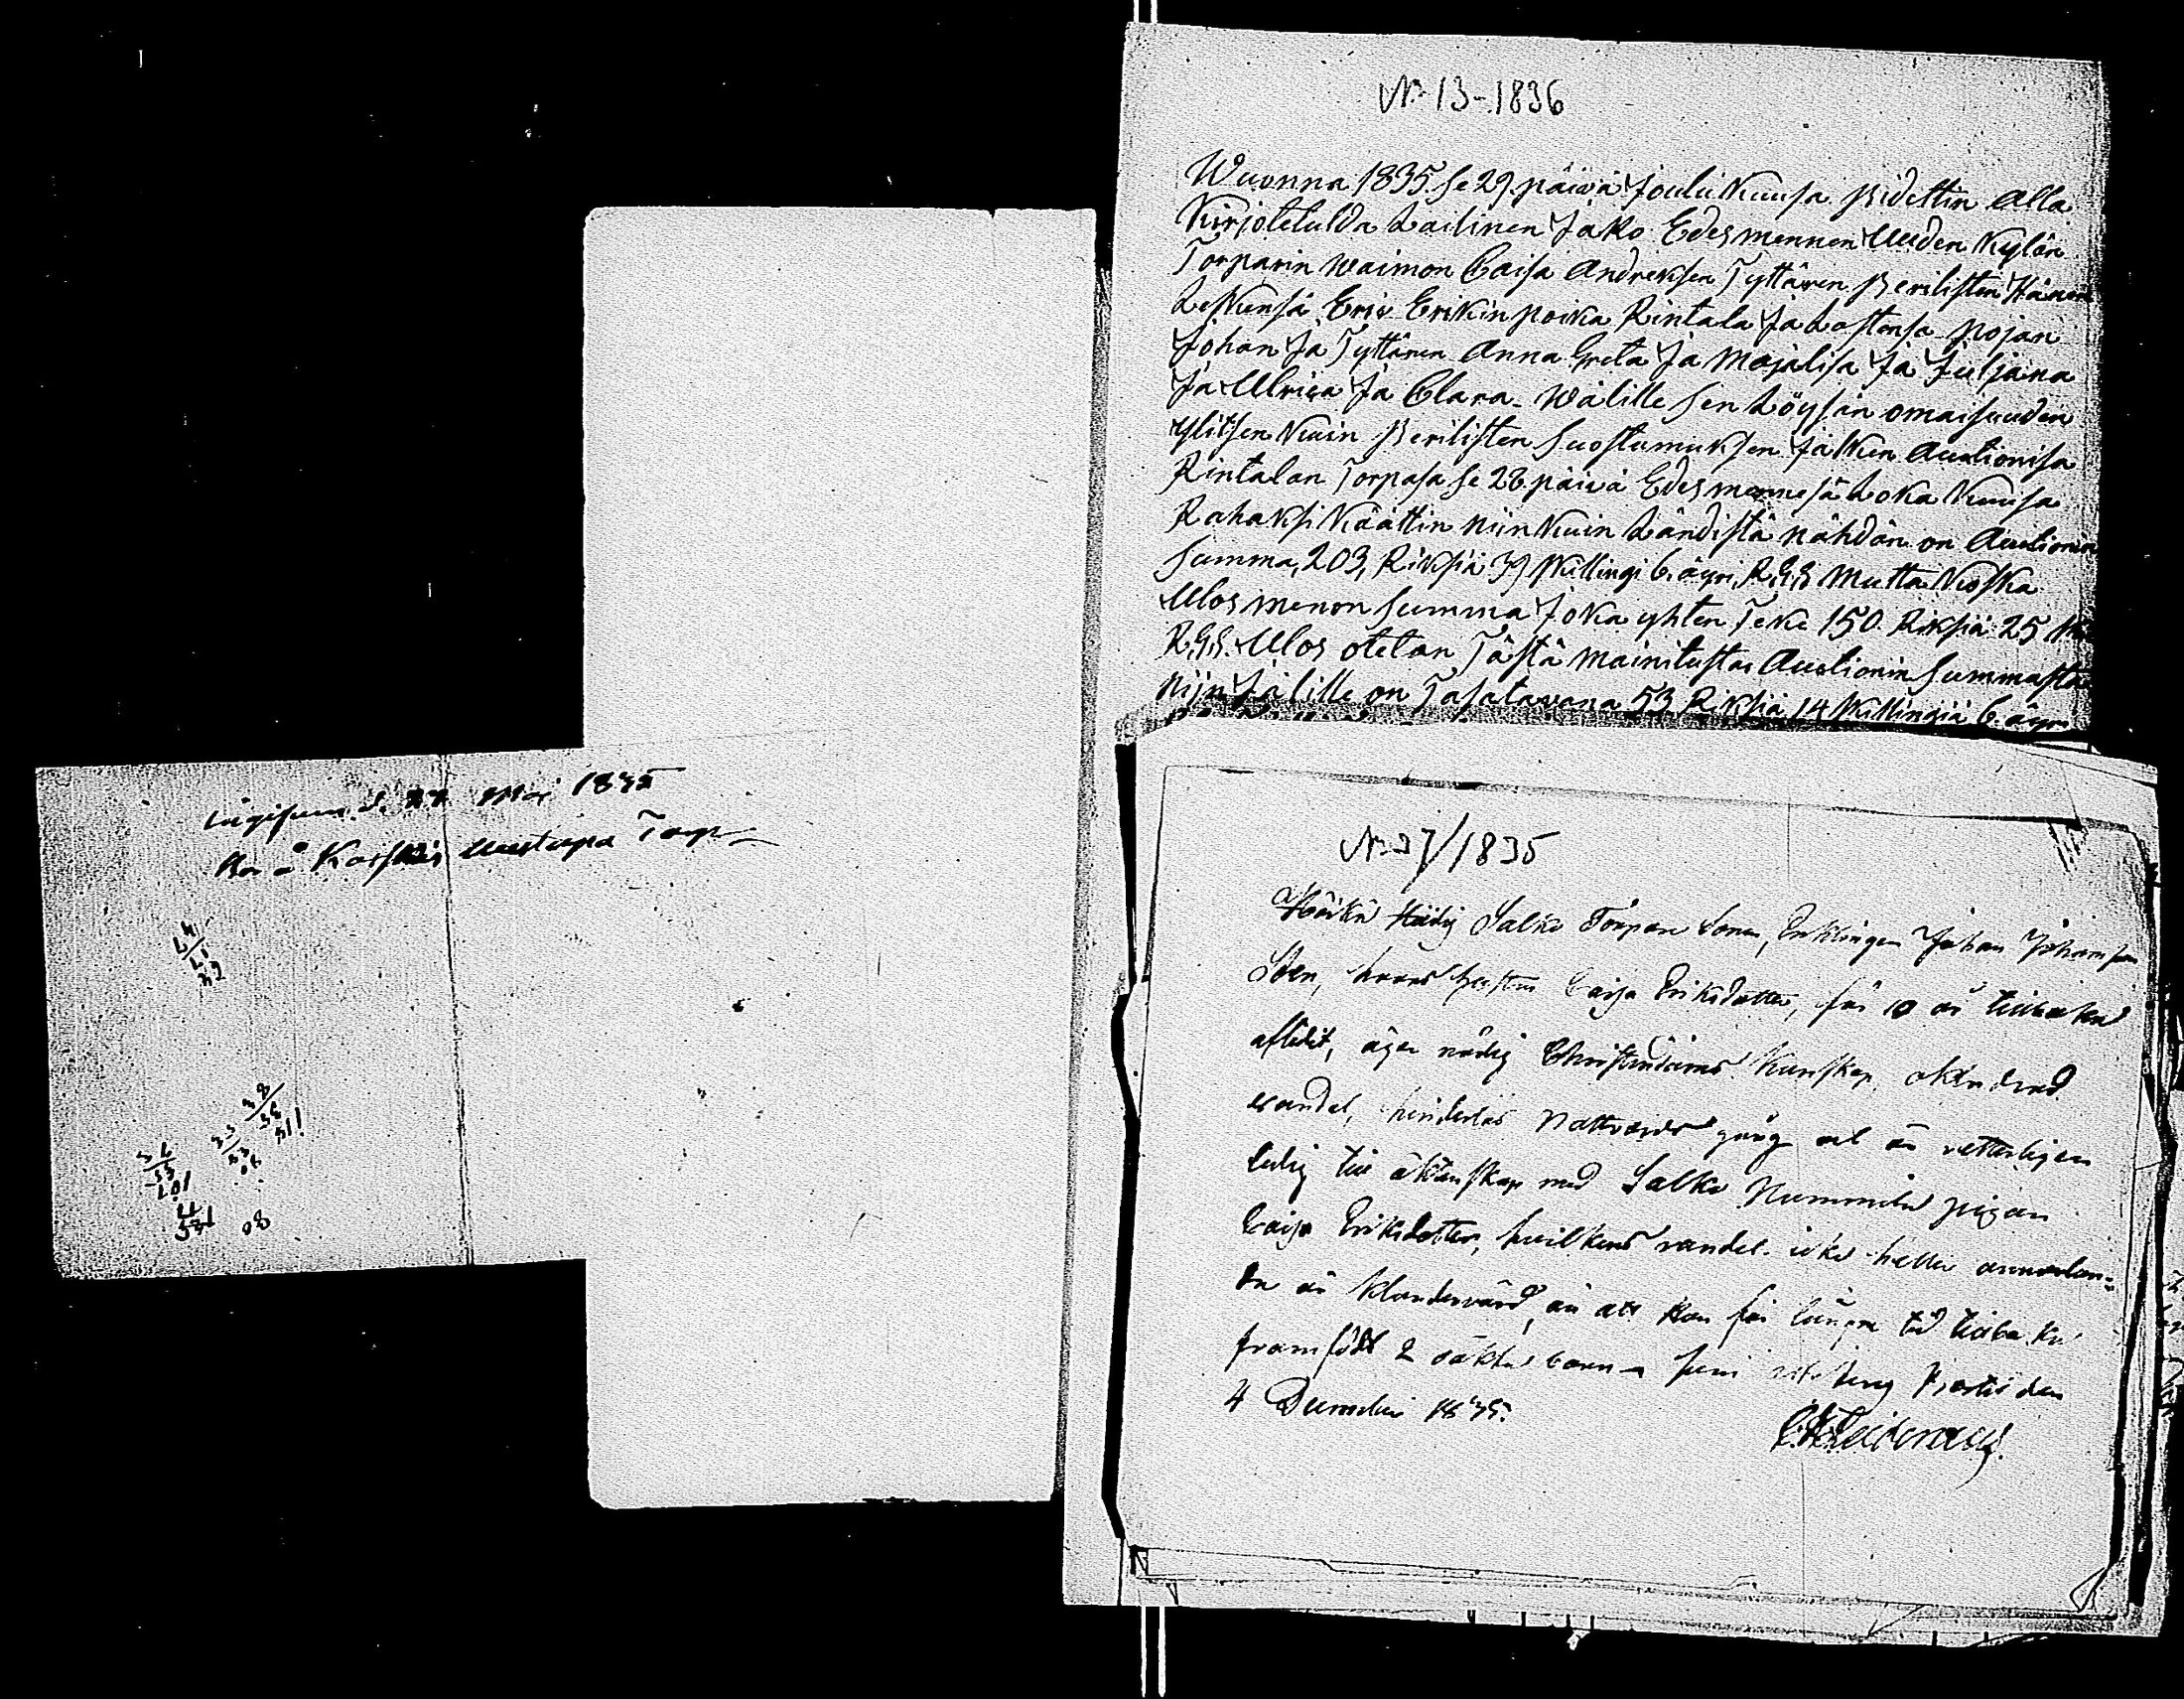 N:o 13-1836
Wuonna 1835 se 29. päivä Joulu Kuusa pidettin alla
Kirjotetulda Lailinen Jako Edesmennen Uuden Kylän
Torparin waimon Caisa Andreksen Tyttären perilisten Hänen
Leskensä Eric Erikin poika Rintala Ja Lastensa pojan
Johan Ja Tyttären Anna Greta Ja Majalisa Ja Juljana
Ja Ulrica Ja Clara - Wälille sen Löysän omaisuuden
ylitsen Kuin perilisten suostumuksen Jälken Auctionisa
Rintalan Torpasa se 28 päivä Edesmennesä Loka Kuusa
Rahaksi Käättin niin Kuin Tändistä nähdän on Auctionin
summa, 203, Riksiä 39 skillingi 6. äyri, R.G.S mutta Koska
Ulosmenon summa Joka yhten Teke 150. Riksiä 25
R.G.S. Ulos otetan Tästä mainitustas Auctionin summasta
niin Jälille on Jaatavana 53 Riksiä 14 skillingiä 6 äyri
d. 27 Maj 1835
Torp
34
53
107
80
N:o 27/1835
Salko Torpare Sonen, Enklingen Johan Johansson
Sten, hvars hustru Caisa Eriksdotter, för 10 år tillbaka
aflidit, äger nödig Christendoms kunskap, oklandrad
vandel, hinderlös Nattvards gång och är vetterligen
ledig till äktenskap med Salko Nummila pigan
Caisa Eriksdotter, hvilkens vandel icke heller annorlun-
da är klandervärd, än att hon för längre tid tillbaka
framfödt 2 oäkta barn
4 December 1835.